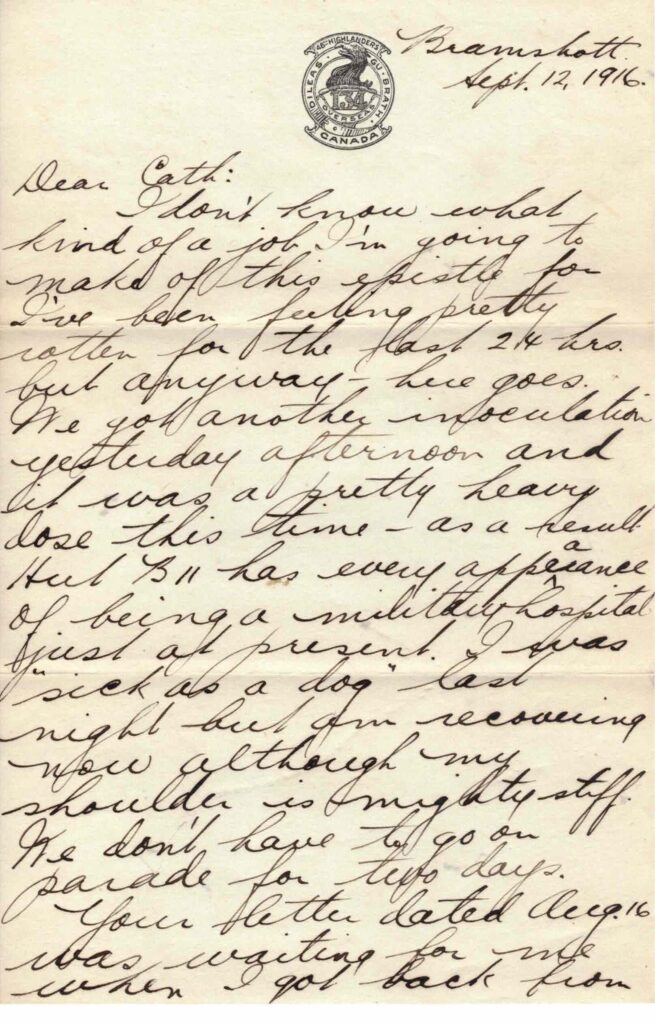 48TH HIGHLANDERS
DILEAS GU BRATH
134
OVERSEAS
CANADA
Bramshott.
Sept. 12, 1916.
Dear Cath:
I don't know what
kind of a job I'm going to
make of this epistle for
I've been feeling pretty
rotten for the last 24 hrs.
but anyway – here goes.
We got another inoculation
yesterday afternoon and
it was a pretty heavy
dose this time – as a result
Hut B11 has every appearance
of being a military hospital
just at present. I was
"sick as a dog" last
night but am recovering
now although my
shoulder is mighty stiff.
We don't have to go on
parade for two days.
Your letter dated Aug. 16
was waiting for me
when I got back from